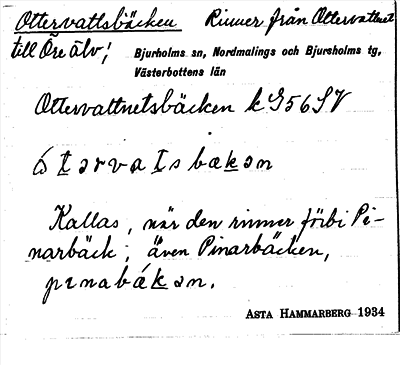 Ottervattsbäcken Rinner från Ottervattnet
till Öre älv;
Bjurholms sn, Nordmalings och Bjurholms tg,
Västerbottens län
Ottervattnetsbäcken k G56SV
ó t ə r v a t s b a k ə n
Kallas, när den rinner förbi Pi-
narbäck; även Pinarbäcken,
p ɪ n a b á k ə n.
ASTA HAMMARBERG 1934